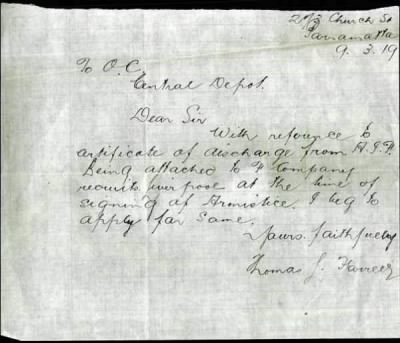 Church St
Parramatta
9.3.19
To O.C.
Central Depot.
Dear Sir
With reference to
certificate of discharge from A.I.F.
Being attached to F Company
recruits at the time of
signing of Armistice I beg to
apply for same.
Yours faithfully
Thomas J.